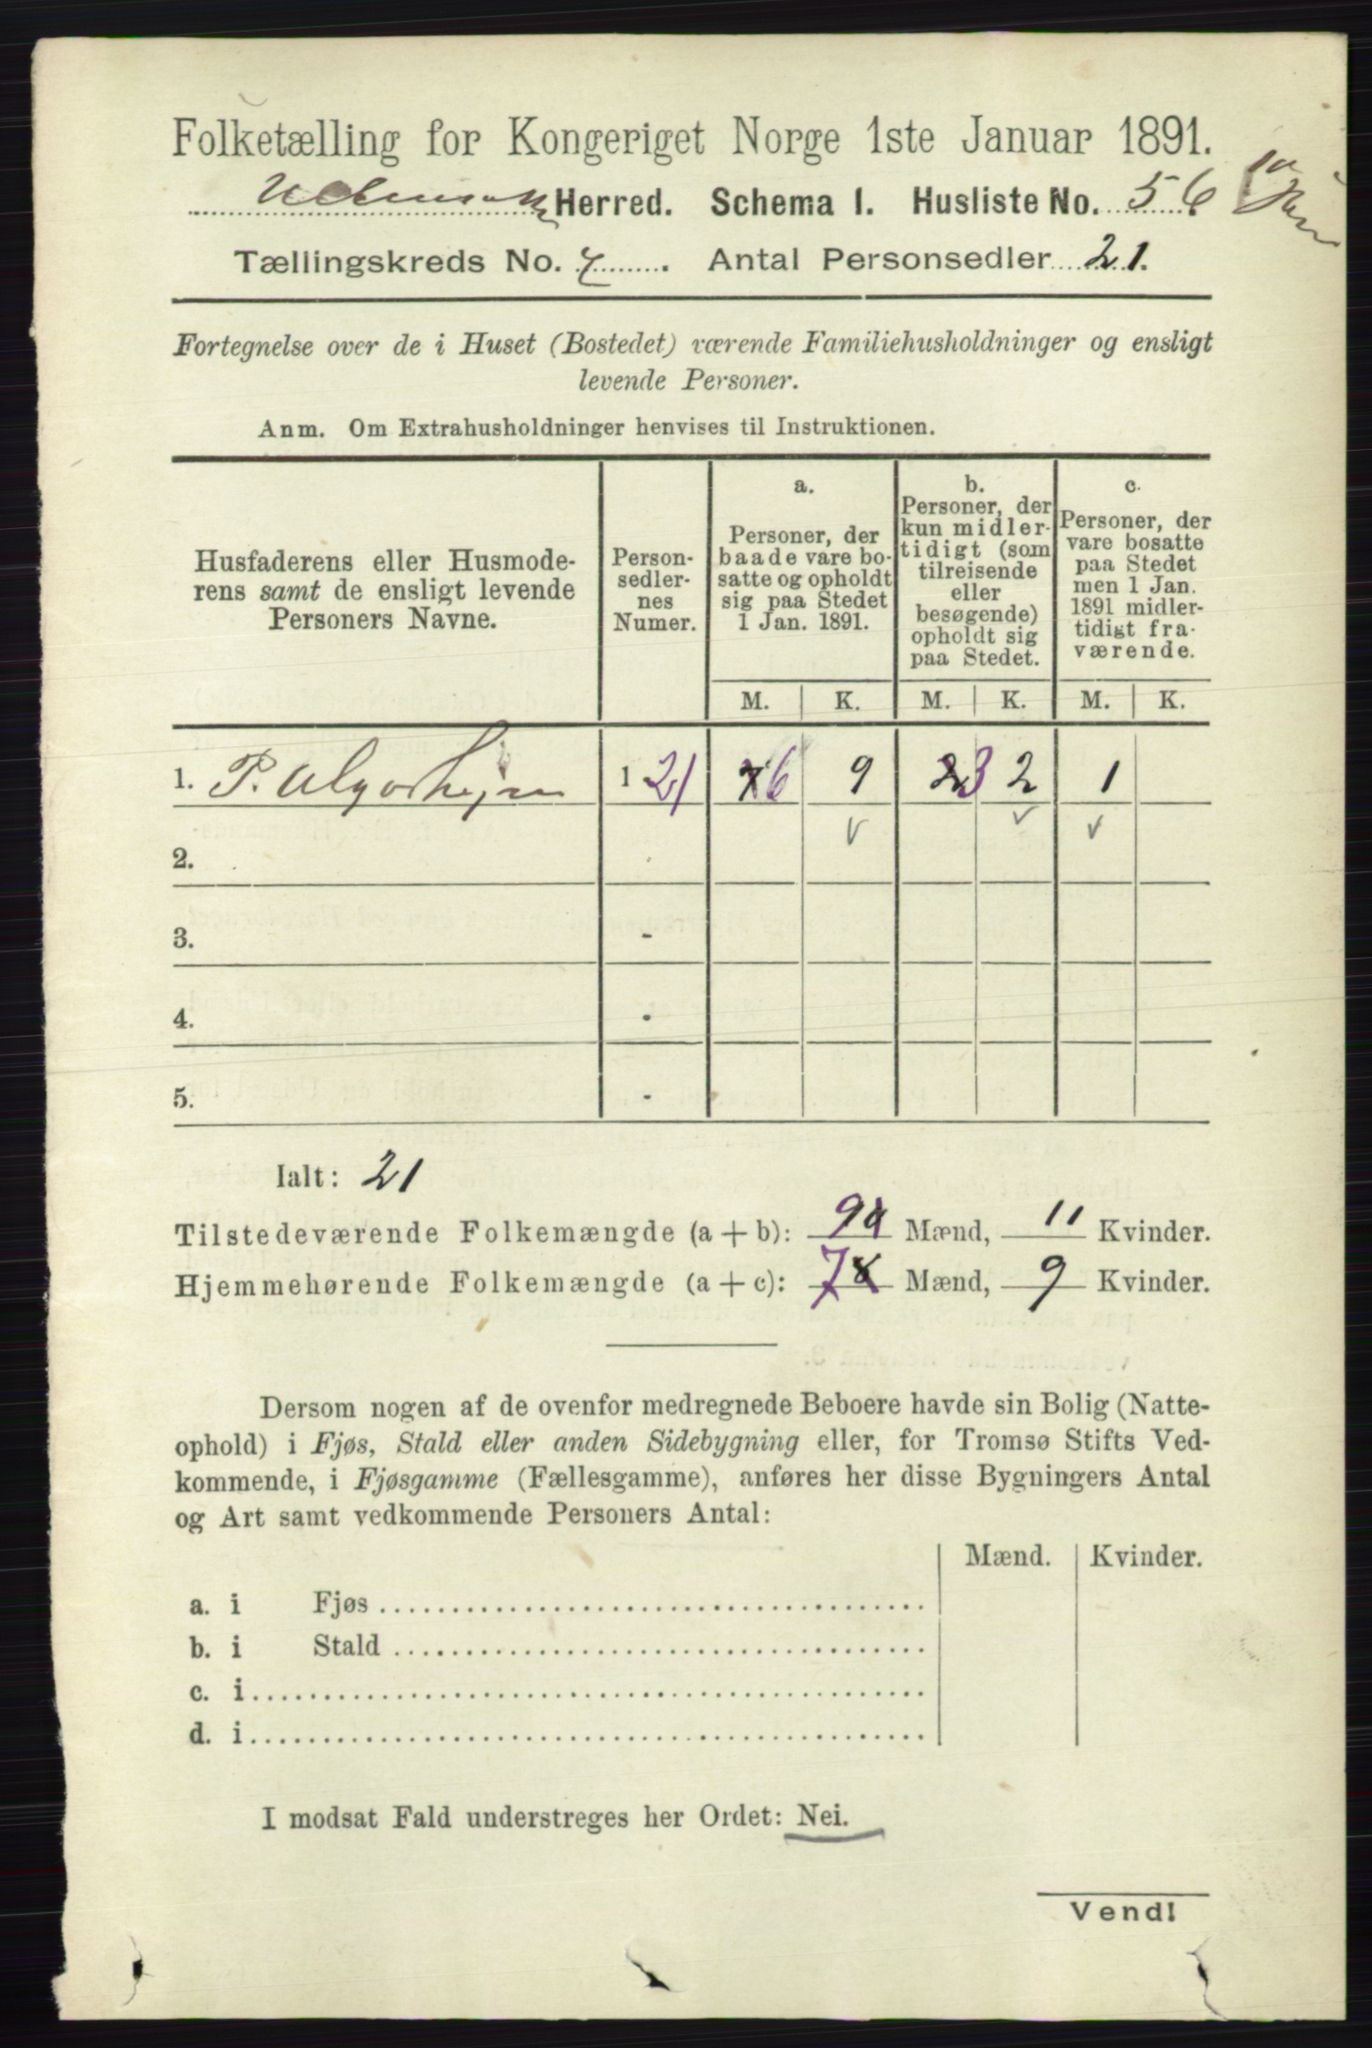 Folketælling for Kongeriget Norge 1ste Januar 1891.
Herred. Schema I. Husliste No. 56
Tællingskreds No. 7. Antal Personsedler 21.
Fortegnelse over de i Huset (Bostedet) værende Familiehusholdninger og ensligt
levende Personer.
Anm. Om Extrahusholdninger henvises til Instruktionen.
Husfaderens eller Husmode-
rens samt de ensligt levende
Personers Navne.
Person-
sedler-
nes
Numer.
a.
Personer, der
baade vare bo-
satte og opholdt
sig paa Stedet
1 Jan. 1891.
b.
Personer, der
kun midler-
tidigt (som
tilreisende
eller
besøgende)
opholdt sig
paa Stedet.
c.
Personer, der
vare bosatte
paa Stedet
men 1 Jan.
1891 midler-
tidigt fra-
værende.
M. K. M. K. M. K.
1. P. 1 21 6 9 3 2 1
2.
3. -
4.
5. -
Ialt: 21
Tilstedeværende Folkemængde (a + b): 9 Mænd, 11 Kvinder.
Hjemmehørende Folkemængde (a + c): 7 Mænd, 9 Kvinder.
Dersom nogen af de ovenfor medregnede Beboere havde sin Bolig (Natte-
ophold) i Fjøs, Stald eller anden Sidebygning eller, for Tromsø Stifts Ved-
kommende, i Fjøsgamme (Fællesgamme), anføres her disse Bygningers Antal
og Art samt vedkommende Personers Antal:
Mænd. Kvinder.
a. i Fjøs
b. i Stald
c. i
d. i
I modsat Fald understreges her Ordet: Nei.
Vend!